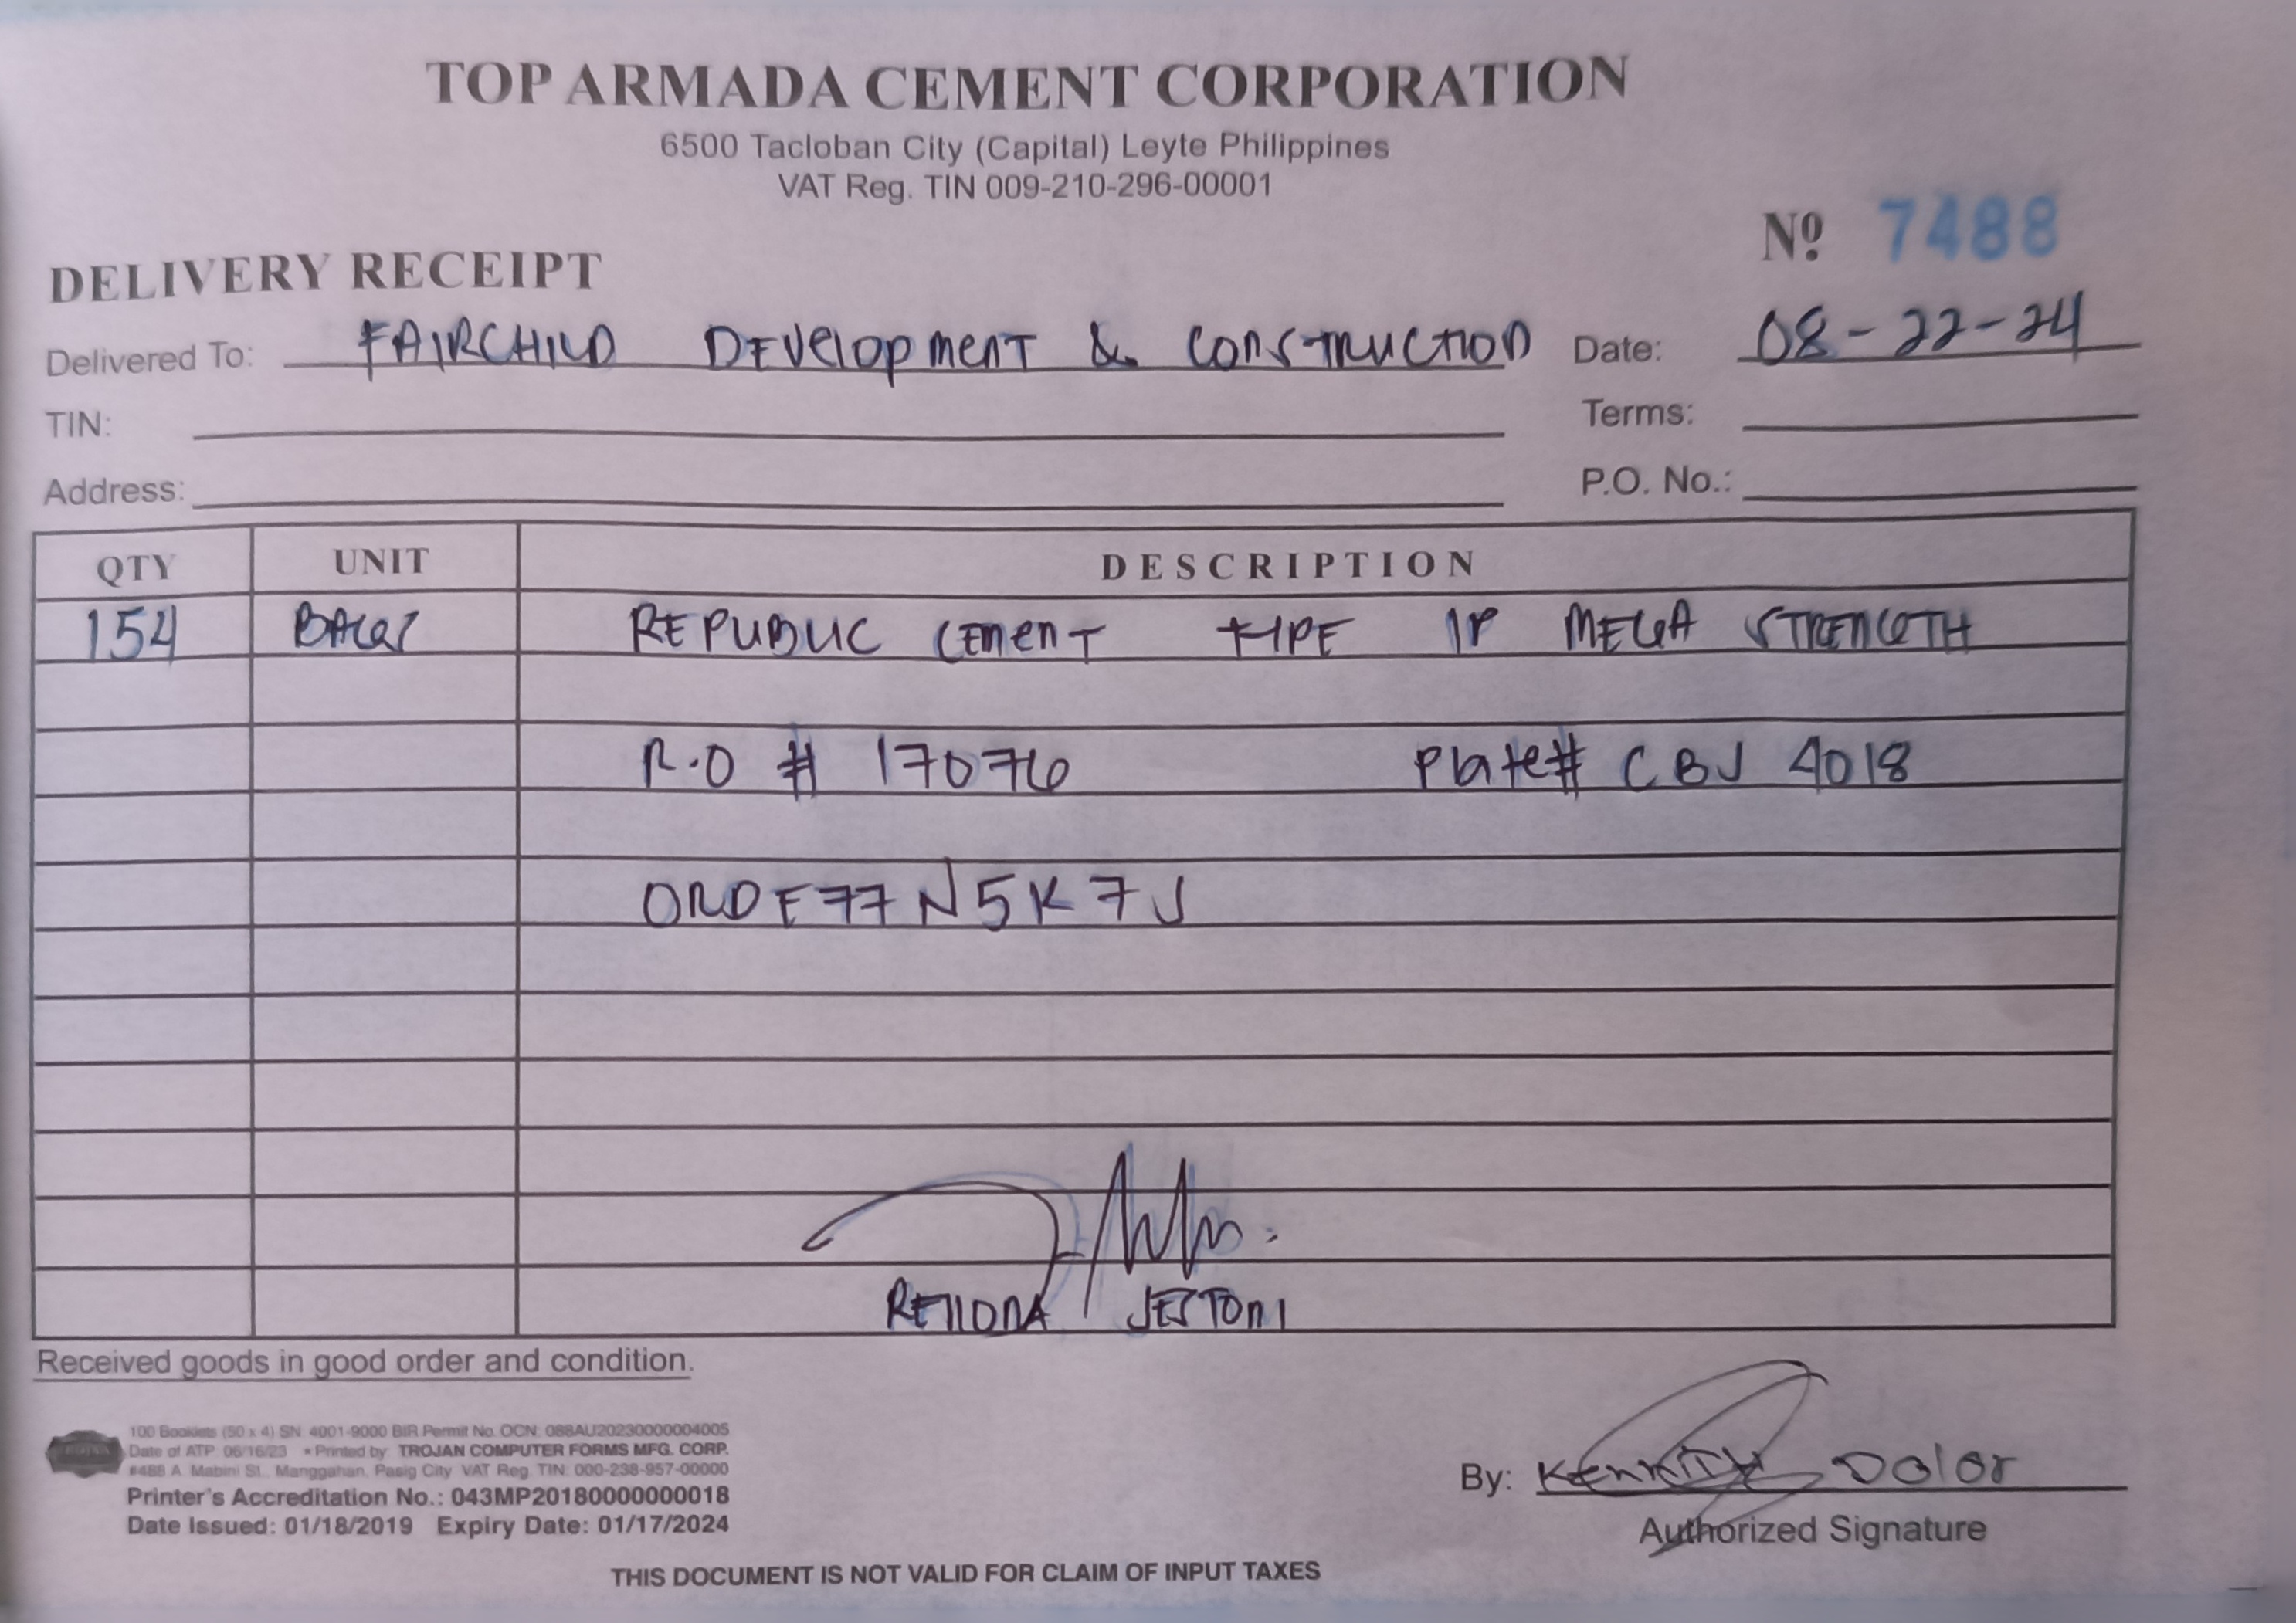 TOP ARMADA CEMENT CORPORATION
6500 Tacloban City (Capital) Leyte Philippines
VAT Reg. TIN 009-210-296-00001
Nº 7488
DELIVERY RECEIPT
Delivered To: FAIRCHILD DEVElopmenT & ConSTRUCTION Date: 08-22-24
TIN: Terms:
Address: P.O. No.:
QTY UNIT DESCRIPTION
154 BAGS REPUBLIC CEmenT TYPE 1P MEGA STRENGTH
R.O # 17076 Plate# CBJ 4018
ORDE77N5K7J
JESTONI
Received goods in good order and condition.
100 Booklets (50 x 4) SN: 4001-9000 BIR Permit No. OCN: 088AU20230000004005
Date of ATP: 06/16/23 • Printed by: TROJAN COMPUTER FORMS MFG. CORP.
#488 A. Mabini St., Manggahan, Pasig City VAT Reg. TIN: 000-238-957-00000
Printer's Accreditation No.: 043MP20180000000018
Date Issued: 01/18/2019 Expiry Date: 01/17/2024
By: Dolor
Authorized Signature
THIS DOCUMENT IS NOT VALID FOR CLAIM OF INPUT TAXES